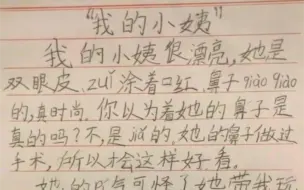 "我的小姨"
我的小姨很漂亮,她是
双眼皮、zuǐ涂着口红、鼻子qiào qiào
的,真时尚。你以为着她的鼻子是
真的吗?不,是jiǎ的,她的鼻子做过
手术,所以才会这样好看。
她的脾气可怪了她带我玩